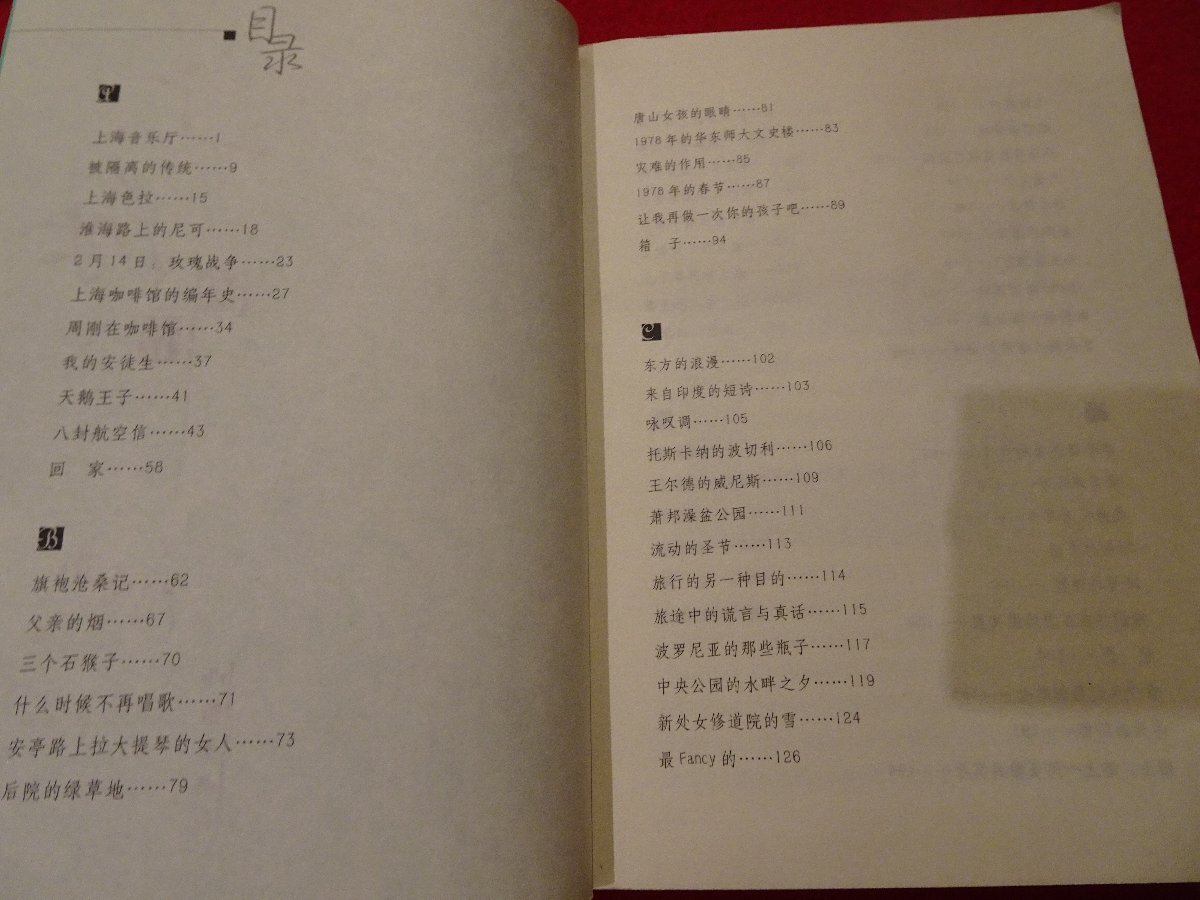 目录
A
上海音乐厅……1
被隔离的传统……9
上海色拉……15
淮海路上的尼可……18
2月14日,玫瑰战争……23
上海咖啡馆的编年史……27
周刚在咖啡馆……34
我的安徒生……37
天鹅王子……41
八封航空信……43
回 家……58
B
旗袍沧桑记……62
父亲的烟……67
三个石猴子……70
什么时候不再唱歌……71
安亭路上拉大提琴的女人……73
后院的绿草地……79
唐山女孩的眼睛……81
1978年的华东师大文史楼……83
灾难的作用……85
1978年的春节……87
让我再做一次你的孩子吧……89
箱 子……94
C
东方的浪漫……102
来自印度的短诗……103
咏叹调……105
托斯卡纳的波切利……106
王尔德的威尼斯……109
萧邦澡盆公园……111
流动的圣节……113
旅行的另一种目的……114
旅途中的谎言与真话……115
波罗尼亚的那些瓶子……117
中央公园的水畔之夕……119
新处女修道院的雪……124
最Fancy的……126